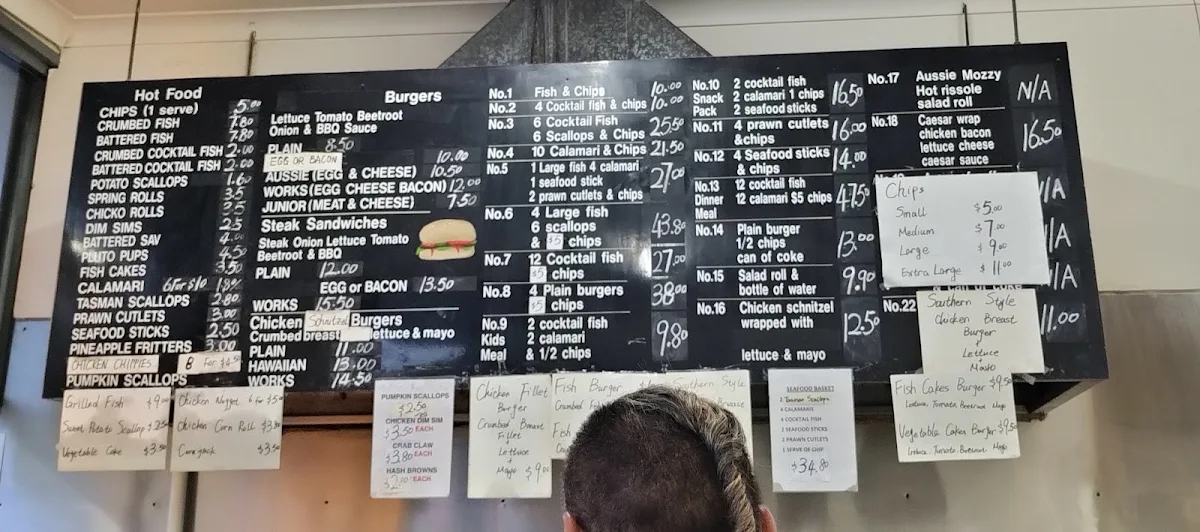 Hot Food
CHIPS (1 serve) 5.00
CRUMBED FISH 7.80
BATTERED FISH 7.80
CRUMBED COCKTAIL FISH 2.00
BATTERED COCKTAIL FISH 2.00
POTATO SCALLOPS 1.60
SPRING ROLLS 3.5
CHICKO ROLLS 3.5
DIM SIMS 2.5
BATTERED SAV 4.00
PLUTO PUPS 4.50
FISH CAKES 3.50
CALAMARI 6 for $10
TASMAN SCALLOPS 2.80
PRAWN CUTLETS 3.00
SEAFOOD STICKS 2.50
PINEAPPLE FRITTERS 3.00
CHICKEN CHIPPIES 8 For
PUMPKIN SCALLOPS
Grilled Fish
Sweet Potato Scallop
Vegetable Cake $3.50
Chicken Nugget 6 for $5.00
Chicken Corn Roll
Corn jack
Burgers
Lettuce Tomato Beetroot
Onion & BBQ Sauce
PLAIN 8.50
EGG OR BACON 10.00
AUSSIE (EGG & CHEESE) 10.50
WORKS (EGG CHEESE BACON) 12.00
JUNIOR (MEAT & CHEESE) 7.50
Steak Sandwiches
Steak Onion Lettuce Tomato
Beetroot & BBQ
PLAIN 12.00
EGG or BACON 13.50
WORKS 15.50
Chicken Schnitzel Burgers
Crumbed breast lettuce & mayo
PLAIN 11.00
HAWAIIAN 13.00
WORKS 14.50
PUMPKIN SCALLOPS
$2.50
CHICKEN DIM SIM
$3.50 EACH
CRAB CLAW
$3.80 EACH
HASH BROWNS
EACH
No.1 Fish & Chips 10.00
No.2 4 Cocktail fish & chips 10.00
No.3 6 Cocktail Fish
6 Scallops & Chips 25.50
No.4 10 Calamari & Chips 21.50
No.5 1 Large fish 4 calamari
1 seafood stick
2 prawn cutlets & chips 27.00
No.6 4 Large fish
6 scallops
& $5 chips 43.80
No.7 12 Cocktail fish
$5 chips 27.00
No.8 4 Plain burgers
$5 chips 38.00
No.9 2 cocktail fish
Kids 2 calamari
Meal & 1/2 chips 9.80
Chicken Fillet
Burger
Crumbed Breast
Fillet
Lettuce
+
Mayo $9.00
Fish Burger
Crumbed
Fish
Southern Style
Breast
No.10 2 cocktail fish
Snack 2 calamari 1 chips
Pack 2 seafood sticks 16.50
No.11 4 prawn cutlets
&chips 16.00
No.12 4 Seafood sticks
& chips 14.00
No.13 12 cocktail fish
Dinner 12 calamari $5 chips
Meal 47.50
No.14 Plain burger
1/2 chips
can of coke 13.00
No.15 Salad roll &
bottle of water 9.90
No.16 Chicken schnitzel
wrapped with
lettuce & mayo 12.50
SEAFOOD BASKET
2 Tasman Scallops
4 CALAMARI
4 COCKTAIL FISH
2 SEAFOOD STICKS
2 PRAWN CUTLETS
1 SERVE OF CHIP
$34.80
No.17 Aussie Mozzy
Hot rissole
salad roll N/A
No.18 Caesar wrap
chicken bacon
lettuce cheese
caesar sauce 16.50
Chips
Small $5.00
Medium $7.00
Large $9.00
Extra Large $11.00
N/A
N/A
N/A
No.22 11.00
Southern Style
Chicken Breast
Burger
+
Lettuce
Mayo
Fish Cakes Burger $9.50
Lettuce, Tomato, Beetroot Mayo
Vegetable Cakes Burger $9.50
Lettuce, Tomato, Beetroot Mayo